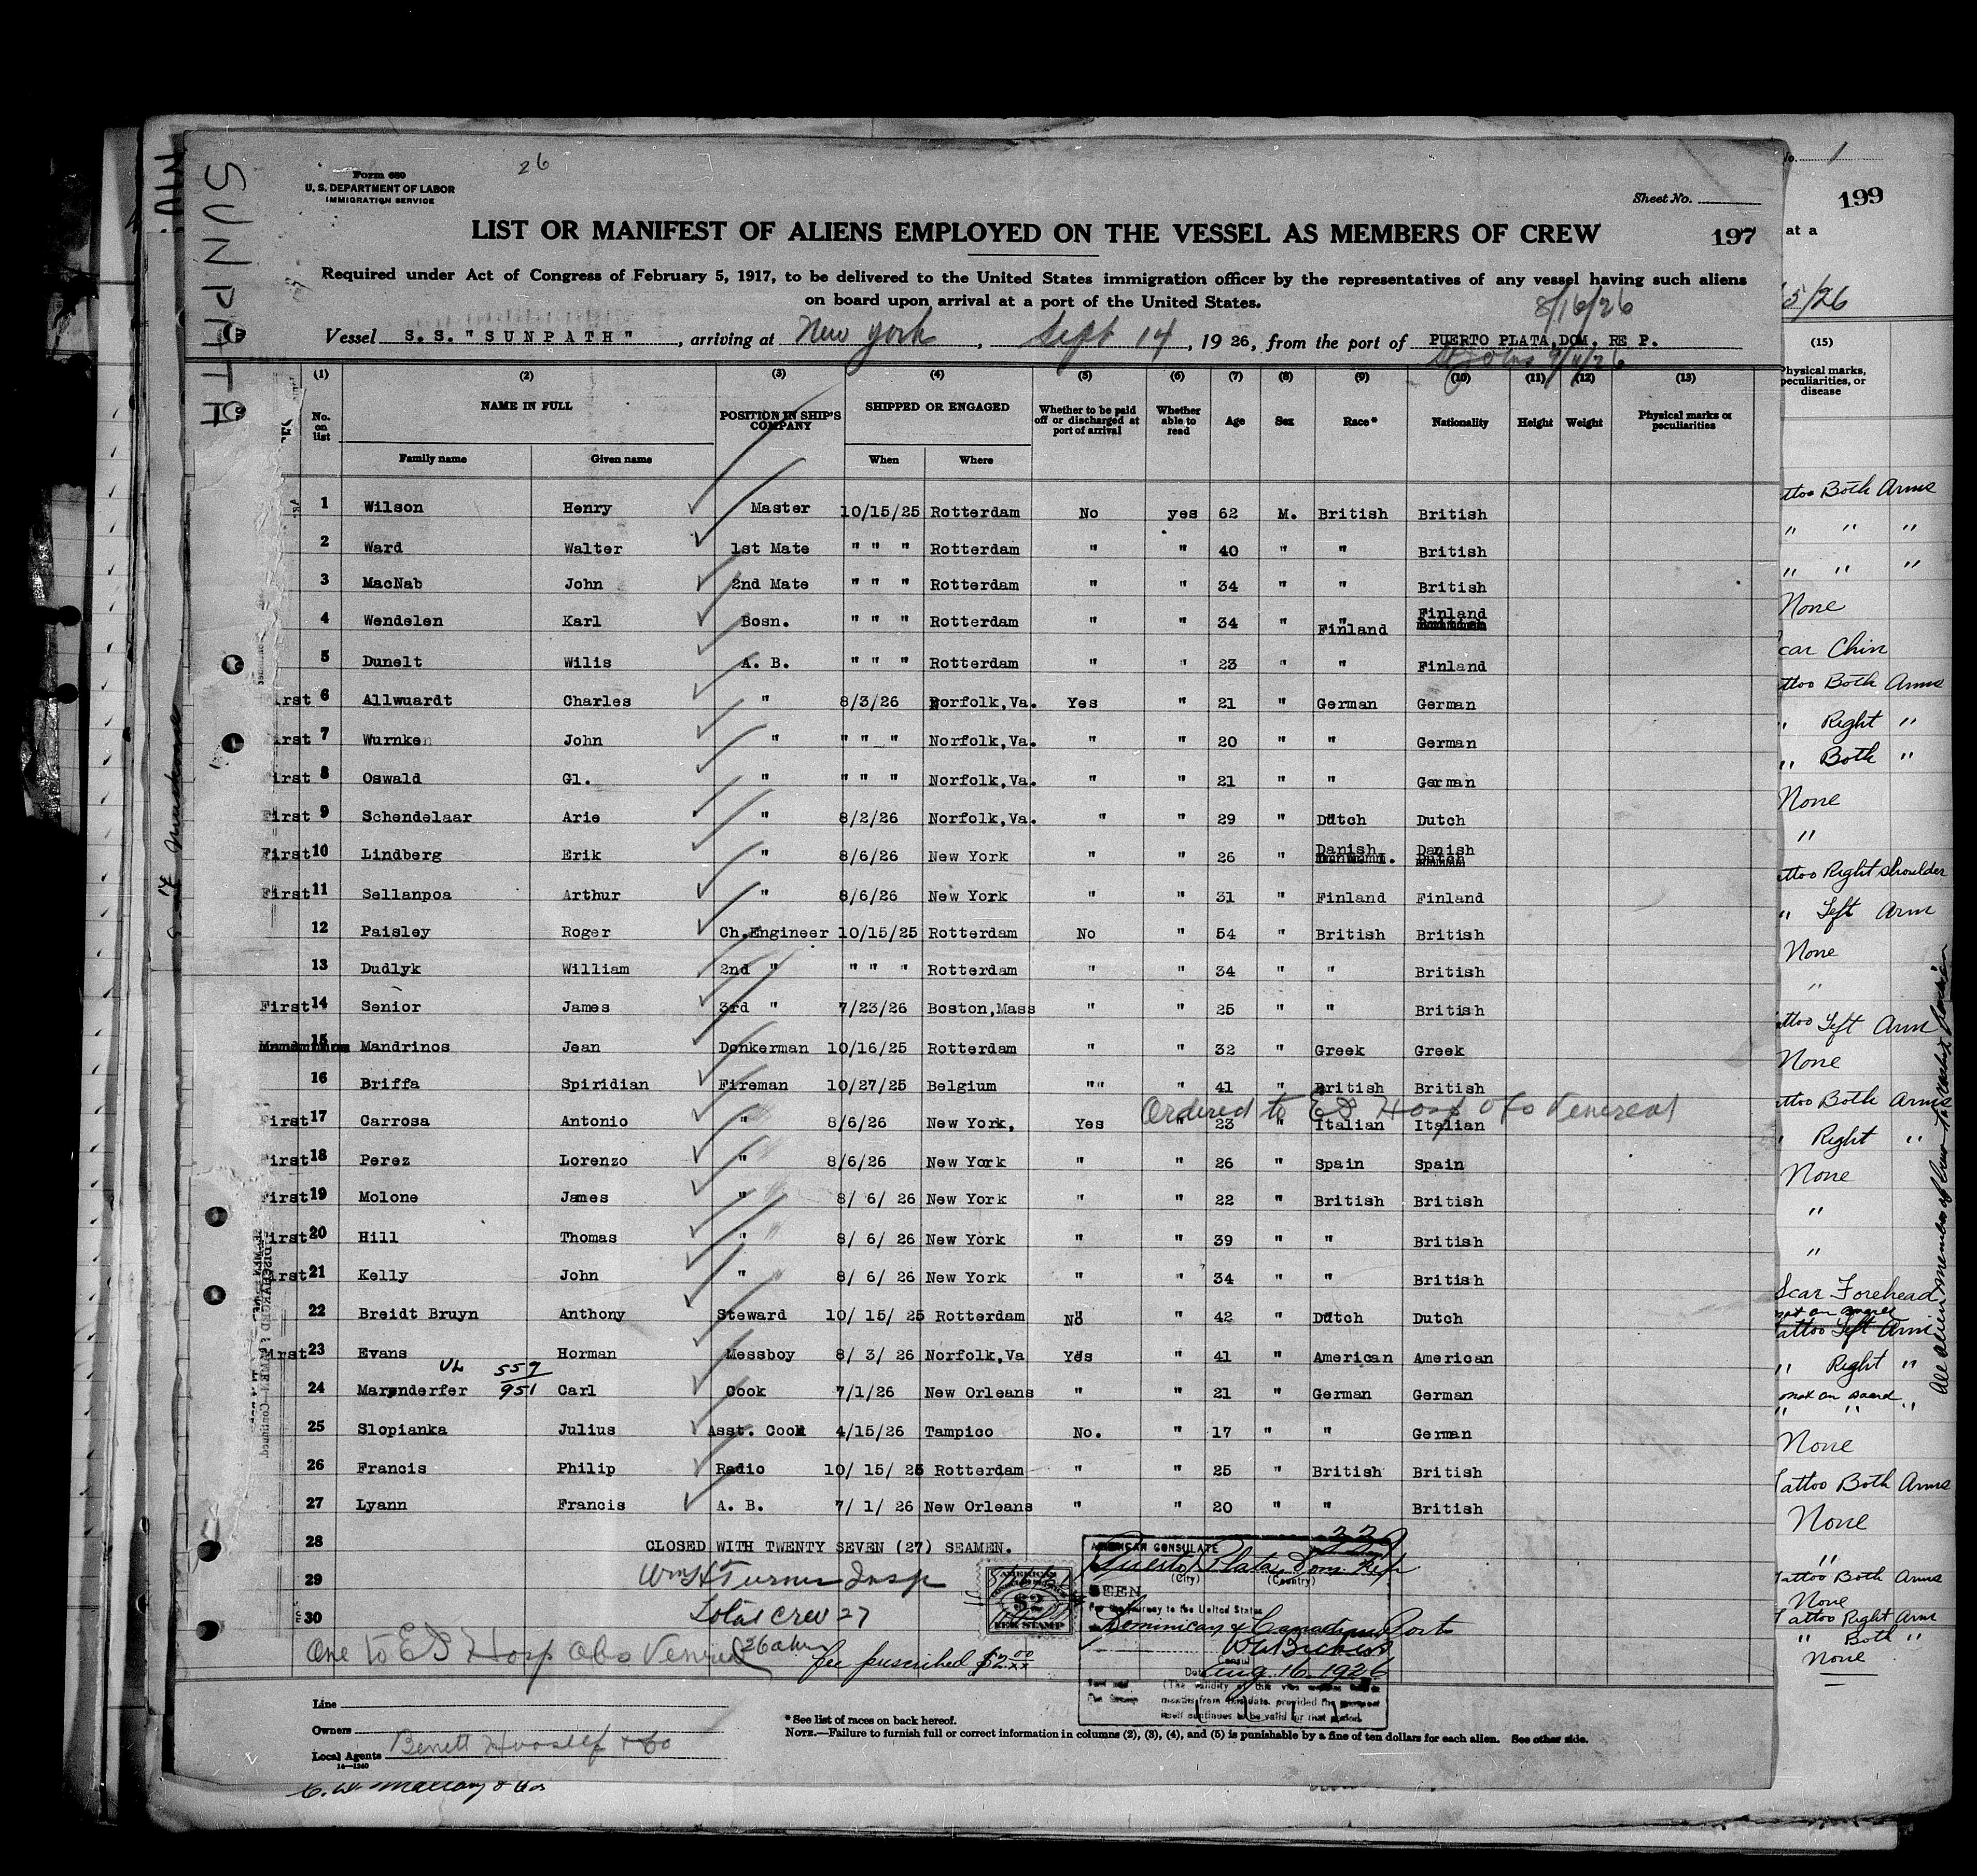 SUNPATH
26
Form 680
U. S. DEPARTMENT OF LABOR
IMMIGRATION SERVICE
Sheet No.
LIST OR MANIFEST OF ALIENS EMPLOYED ON THE VESSEL AS MEMBERS OF CREW
197
Required under Act of Congress of February 5, 1917, to be delivered to the United States immigration officer by the representatives of any vessel having such aliens
on board upon arrival at a port of the United States.
8/16/26
Vessel S.S. "SUNPATH", arriving at New York, Sept 14, 1926, from the port of PUERTO PLATA, DOM. RE P.
St Johns 9/4/26
(1) (2) (3) (4) (5) (6) (7) (8) (9) (10) (11) (12) (13)
No. on list NAME IN FULL POSITION IN SHIP'S COMPANY SHIPPED OR ENGAGED Whether to be paid off or discharged at port of arrival Whether able to read Age Sex Race* Nationality Height Weight Physical marks or peculiarities
Family name Given name When Where
1 Wilson Henry Master 10/15/25 Rotterdam No yes 62 M. British British
2 Ward Walter 1st Mate " " " Rotterdam " " 40 " " British
3 MacNab John 2nd Mate " " " Rotterdam " " 34 " " British
4 Wendelen Karl Bosn. " " " Rotterdam " " 34 " " Finland Finland
5 Dunelt Wilis A. B. " " " Rotterdam " " 23 " " Finland
First 6 Allwuardt Charles " 8/3/26 Norfolk,Va. Yes " 21 " German German
First 7 Wurnken John " " " " Norfolk,Va. " " 20 " " German
First 8 Oswald Gl. " " " " Norfolk,Va. " " 21 " " German
First 9 Schendelaar Arie " 8/2/26 Norfolk,Va. " " 29 " Dutch Dutch
First 10 Lindberg Erik " 8/6/26 New York " " 26 " Danish Danish Dutch
First 11 Sellanpoa Arthur " 8/6/26 New York " " 31 " Finland Finland
12 Paisley Roger Ch.Engineer 10/15/25 Rotterdam No " 54 " British British
13 Dudlyk William 2nd " " " " Rotterdam " " 34 " " British
First 14 Senior James 3rd " 7/23/26 Boston,Mass " " 25 " " British
15 Mandrinos Jean Donkerman 10/16/25 Rotterdam " " 32 " Greek Greek
16 Briffa Spiridian Fireman 10/27/25 Belgium "" " 41 " British British
Ordered to E I Hosp obs Venereal
First 17 Carrosa Antonio " 8/6/26 New York. Yes " 23 " Italian Italian
First 18 Perez Lorenzo " 8/6/26 New York " " 26 " Spain Spain
First 19 Molone James " 8/ 6/ 26 New York " " 22 " British British
First 20 Hill Thomas " 8/ 6/ 26 New York " " 39 " " British
First 21 Kelly John " 8/ 6/ 26 New York " " 34 " " British
22 Breidt Bruyn Anthony Steward 10/ 15/ 25 Rotterdam No " 42 " Dutch Dutch
First 23 Evans Horman Messboy 8/ 3/ 26 Norfolk,Va Yes " 41 " American American
559
951
24 Marynderfer Carl Cook 7/1/26 New Orleans " " 21 " German German
25 Slopianka Julius Asst. Cook 4/15/26 Tampico No. " 17 " " German
26 Francis Philip Radio 10/ 15/ 25 Rotterdam " " 25 " British British
27 Lyann Francis A. B. 7/ 1/ 26 New Orleans " " 20 " " British
28 CLOSED WITH TWENTY SEVEN (27) SEAMEN.
29 Wm H Turner Insp
30 Total crew 27
One to E I Hosp obs Venereal
fee prescribed $2.00
AMERICAN $2 FEE STAMP
AMERICAN CONSULATE
Puerto Plata, Dom. Rep
(City) (Country)
SEEN
For the journey to the United States
Dominican & Canadian Ports
Consul
Date Aug 16 1926
(The validity of this visa
months from this date, provided the passport
itself continues to be valid for that period.
Line
Owners
Local Agents Benett &Co
14—1240
*See list of races on back hereof.
NOTE.—Failure to furnish full or correct information in columns (2), (3), (4), and (5) is punishable by a fine of ten dollars for each alien. See other side.
C. W. Mallory & Co
No. 1
199
at a
5/26
(15)
Physical marks, peculiarities, or disease
Tattoo Both Arms
" " "
" " "
None
Scar Chin
Tattoo Both Arms
" Right "
" Both "
None
"
Tattoo Right shoulder
" Left Arm
None
"
Tattoo Left Arm
None
Tattoo Both Arms
" Right "
None
"
"
Scar Forehead
Tattoo Left Arm
" Right "
not on board
" " "
None
Tattoo Both Arms
None
"
Tattoo Both Arms
None
Tattoo Right Arm
" Both "
None